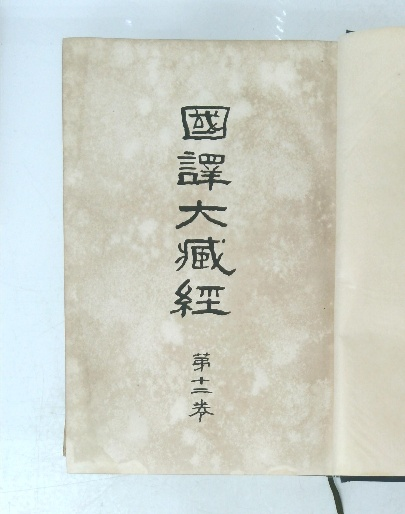 國譯大藏經
第十二卷